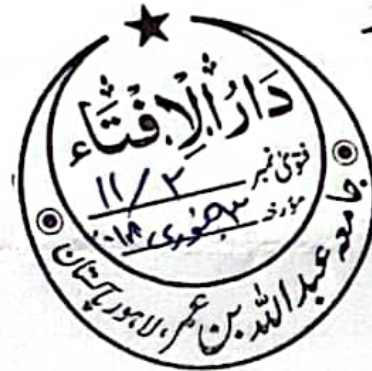 دَارُ الْاِفْتَاء
فتویٰ نمبر ۱۱/۲
مؤرخہ ۳ جنوری ۲۰۱۸
جامعہ عبد اللہ بن عمر، لاہور پاکستان